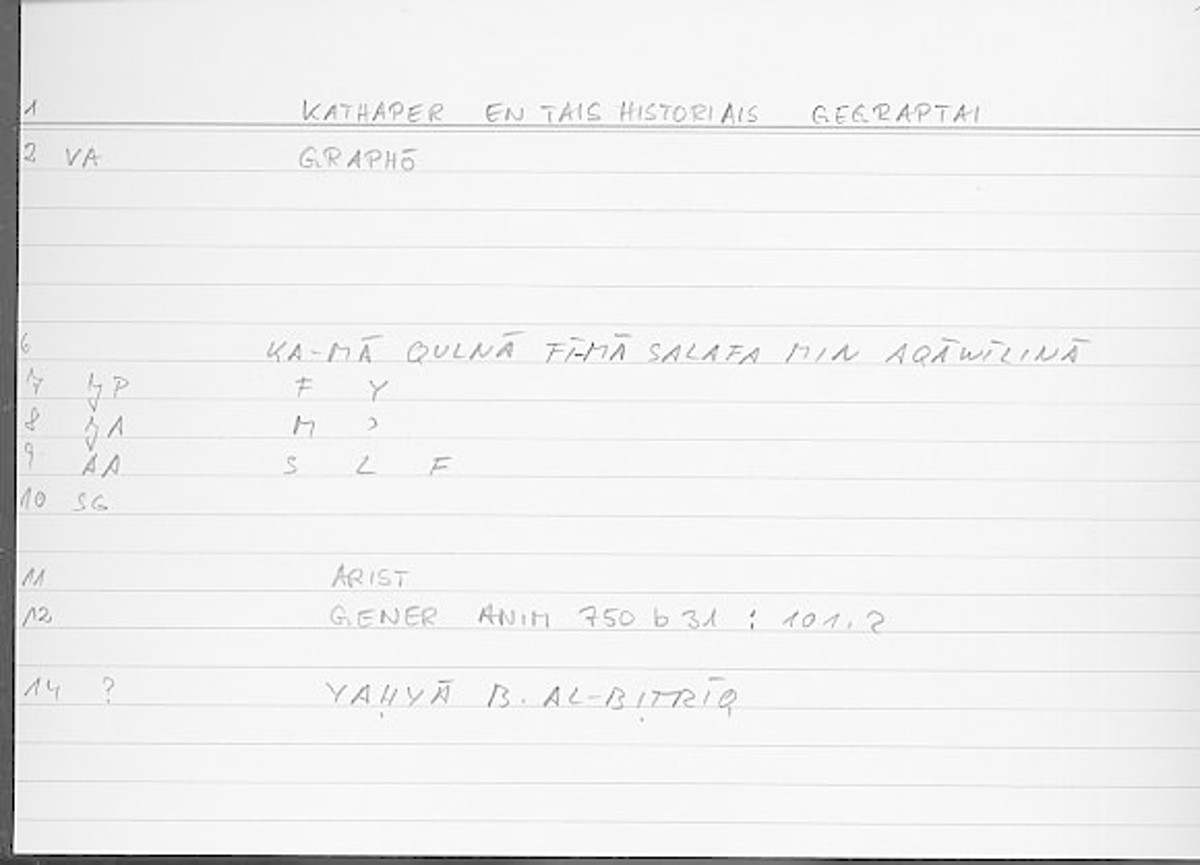 1 KATHAPER EN TAIS HISTORIAIS GEGRAPTAI
2 VA GRAPHŌ
6 KA-MĀ QULNĀ FĪ-MĀ SALAFA MIN AQĀWĪLINĀ
7 P F Y
8 A M ʾ
9 AA S L F
10 SG
11 ARIST
12 GENER ANIM 750 b 31 : 101.2
14 ? YAḤYĀ B. AL-BIṬRĪQ